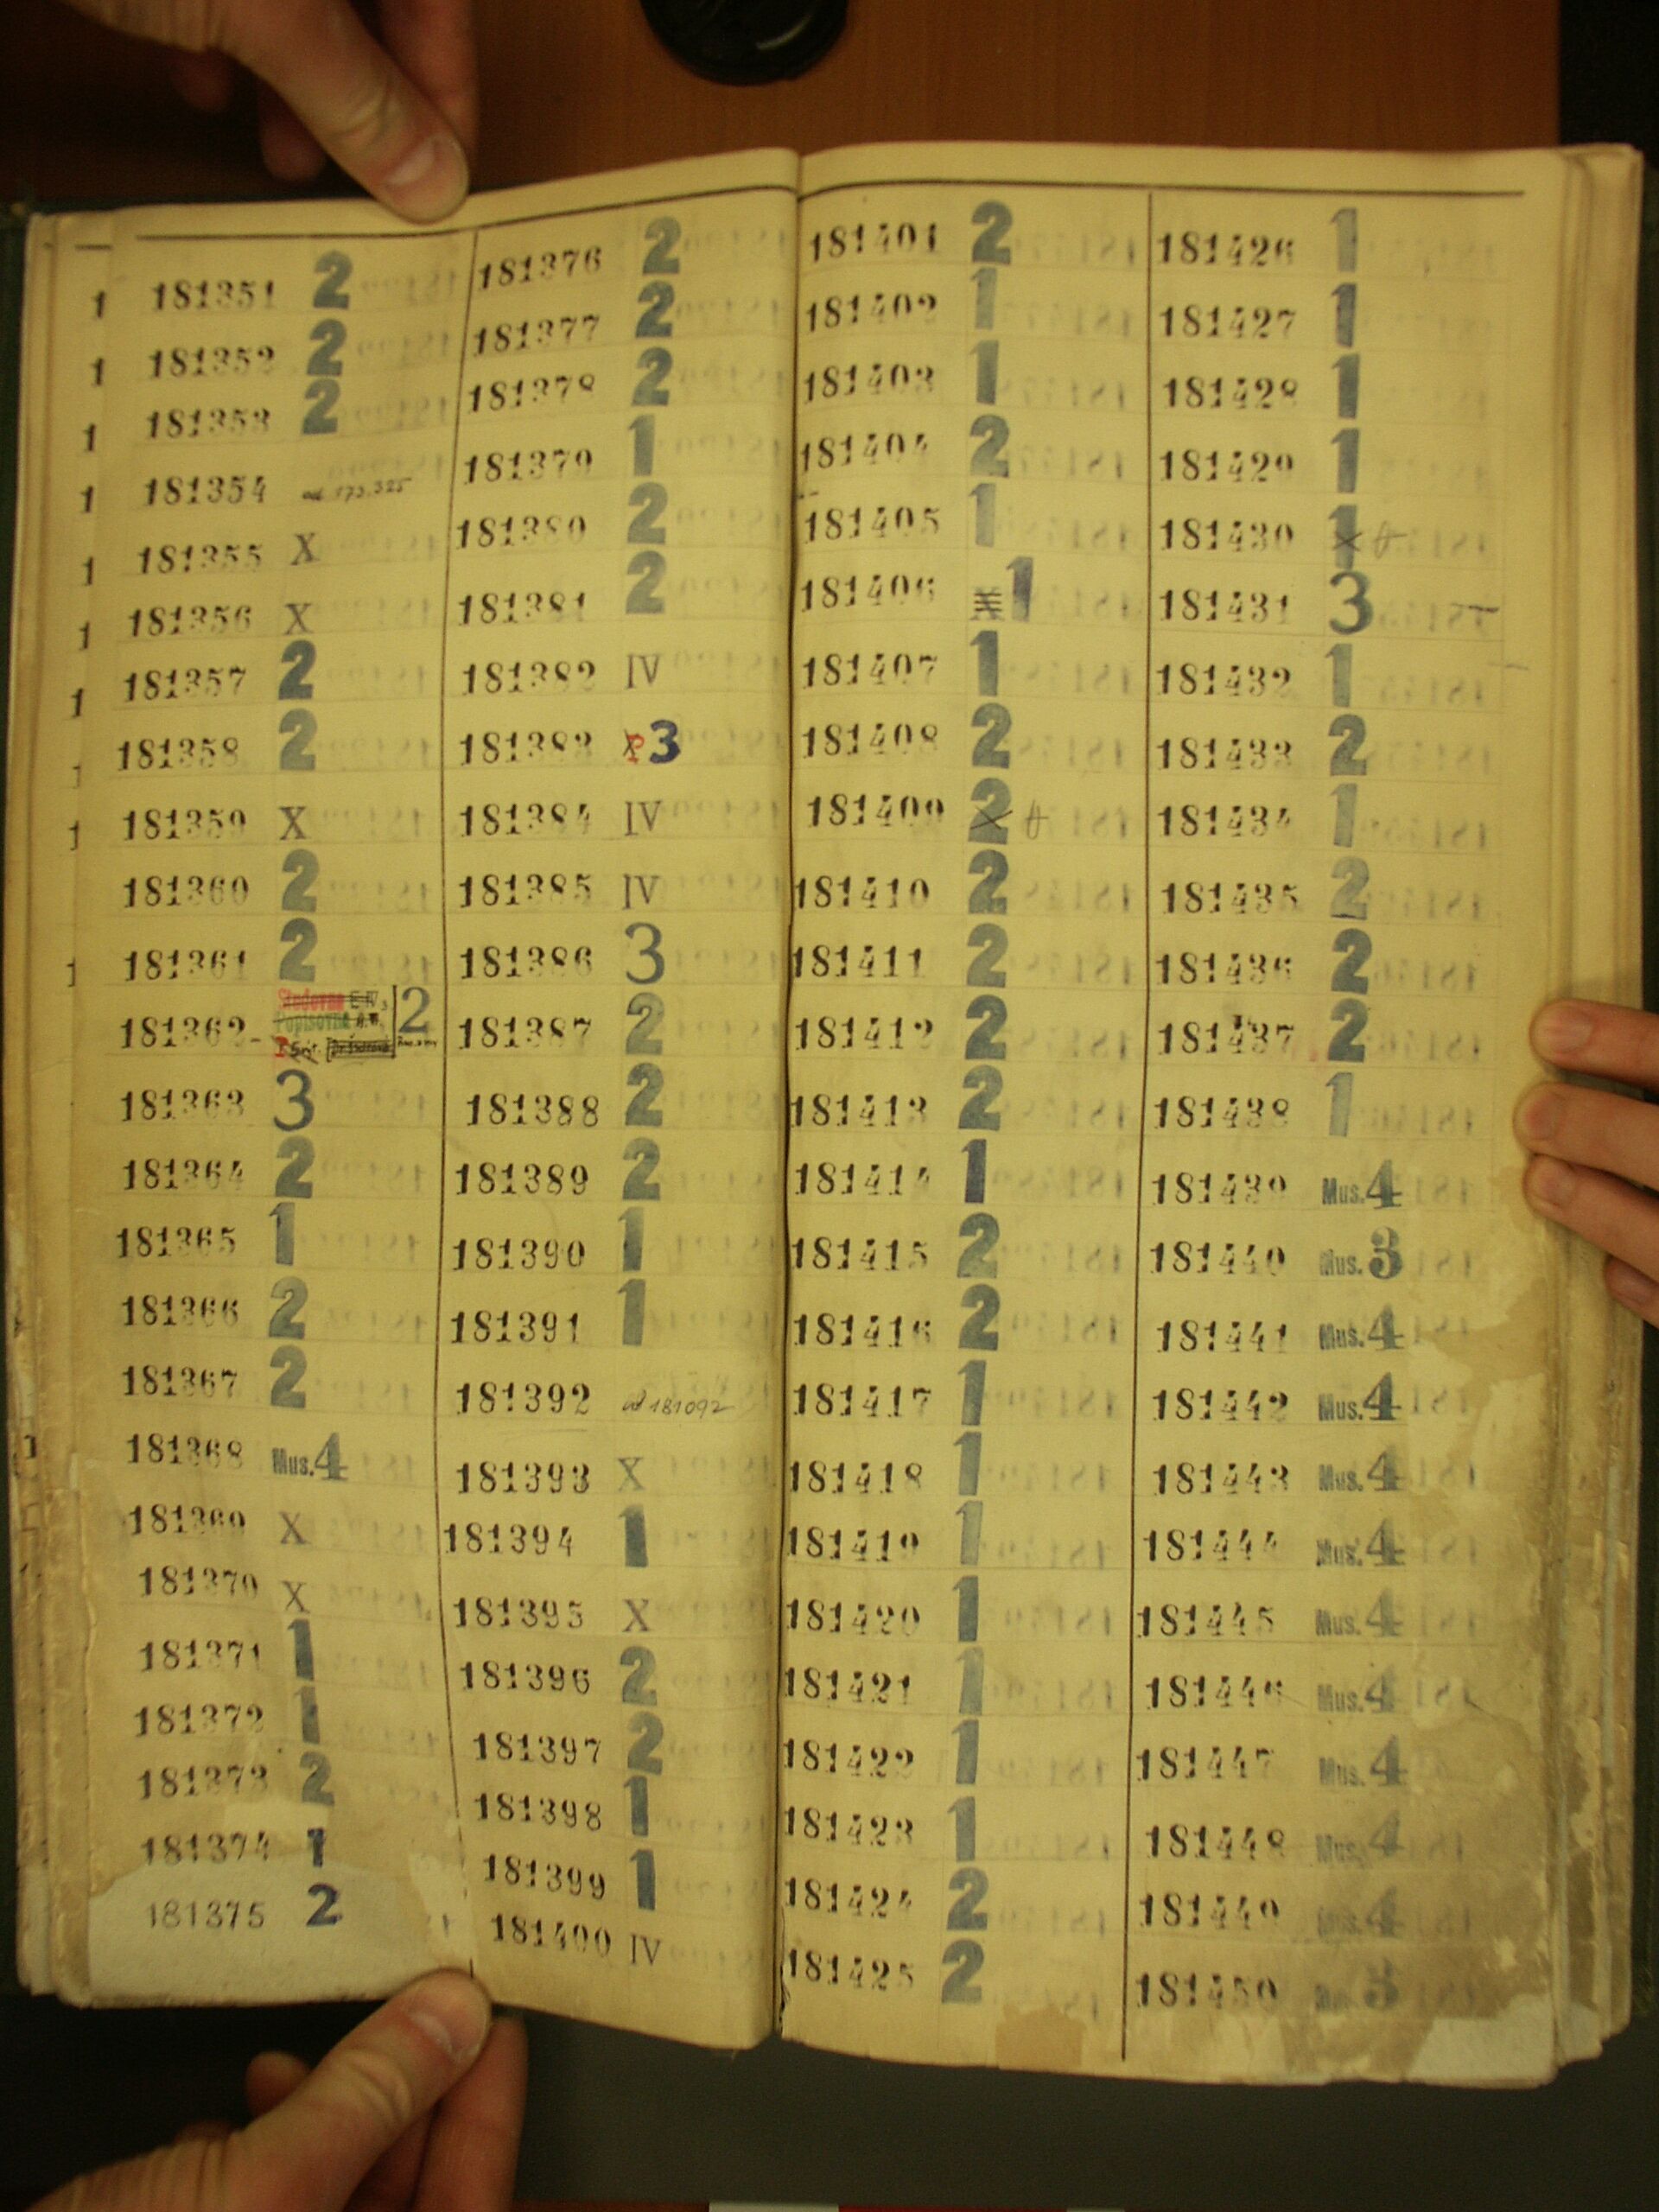 181351 2
181352 2
181353 2
181354 ad 173.325
181355 X
181356 X
181357 2
181358 2
181359 X
181360 2
181361 2
181362- Studovna Popisovna 2
181363 3
181364 2
181365 1
181366 2
181367 2
181368 Mus.4
181369 X
181370 X
181371 1
181372 1
181373 2
181374 1
181375 2
181376 2
181377 2
181378 2
181379 1
181380 2
181381 2
181382 IV
181383 X 3
181384 IV
181385 IV
181386 3
181387 2
181388 2
181389 2
181390 1
181391 1
181392 ad 181092
181393 X
181394 1
181395 X
181396 2
181397 2
181398 1
181399 1
181400 IV
181401 2
181402 1
181403 1
181404 2
181405 1
181406 X 1
181407 1
181408 2
181409 2
181410 2
181411 2
181412 2
181413 2
181414 1
181415 2
181416 2
181417 1
181418 1
181419 1
181420 1
181421 1
181422 1
181423 1
181424 2
181425 2
181426 1
181427 1
181428 1
181429 1
181430 1
181431 3
181432 1
181433 2
181434 1
181435 2
181436 2
181437 2
181438 1
181439 Mus.4
181440 Mus.3
181441 Mus.4
181442 Mus.4
181443 Mus.4
181444 Mus.4
181445 Mus.4
181446 Mus.4
181447 Mus.4
181448 Mus.4
181449 Mus.4
181450